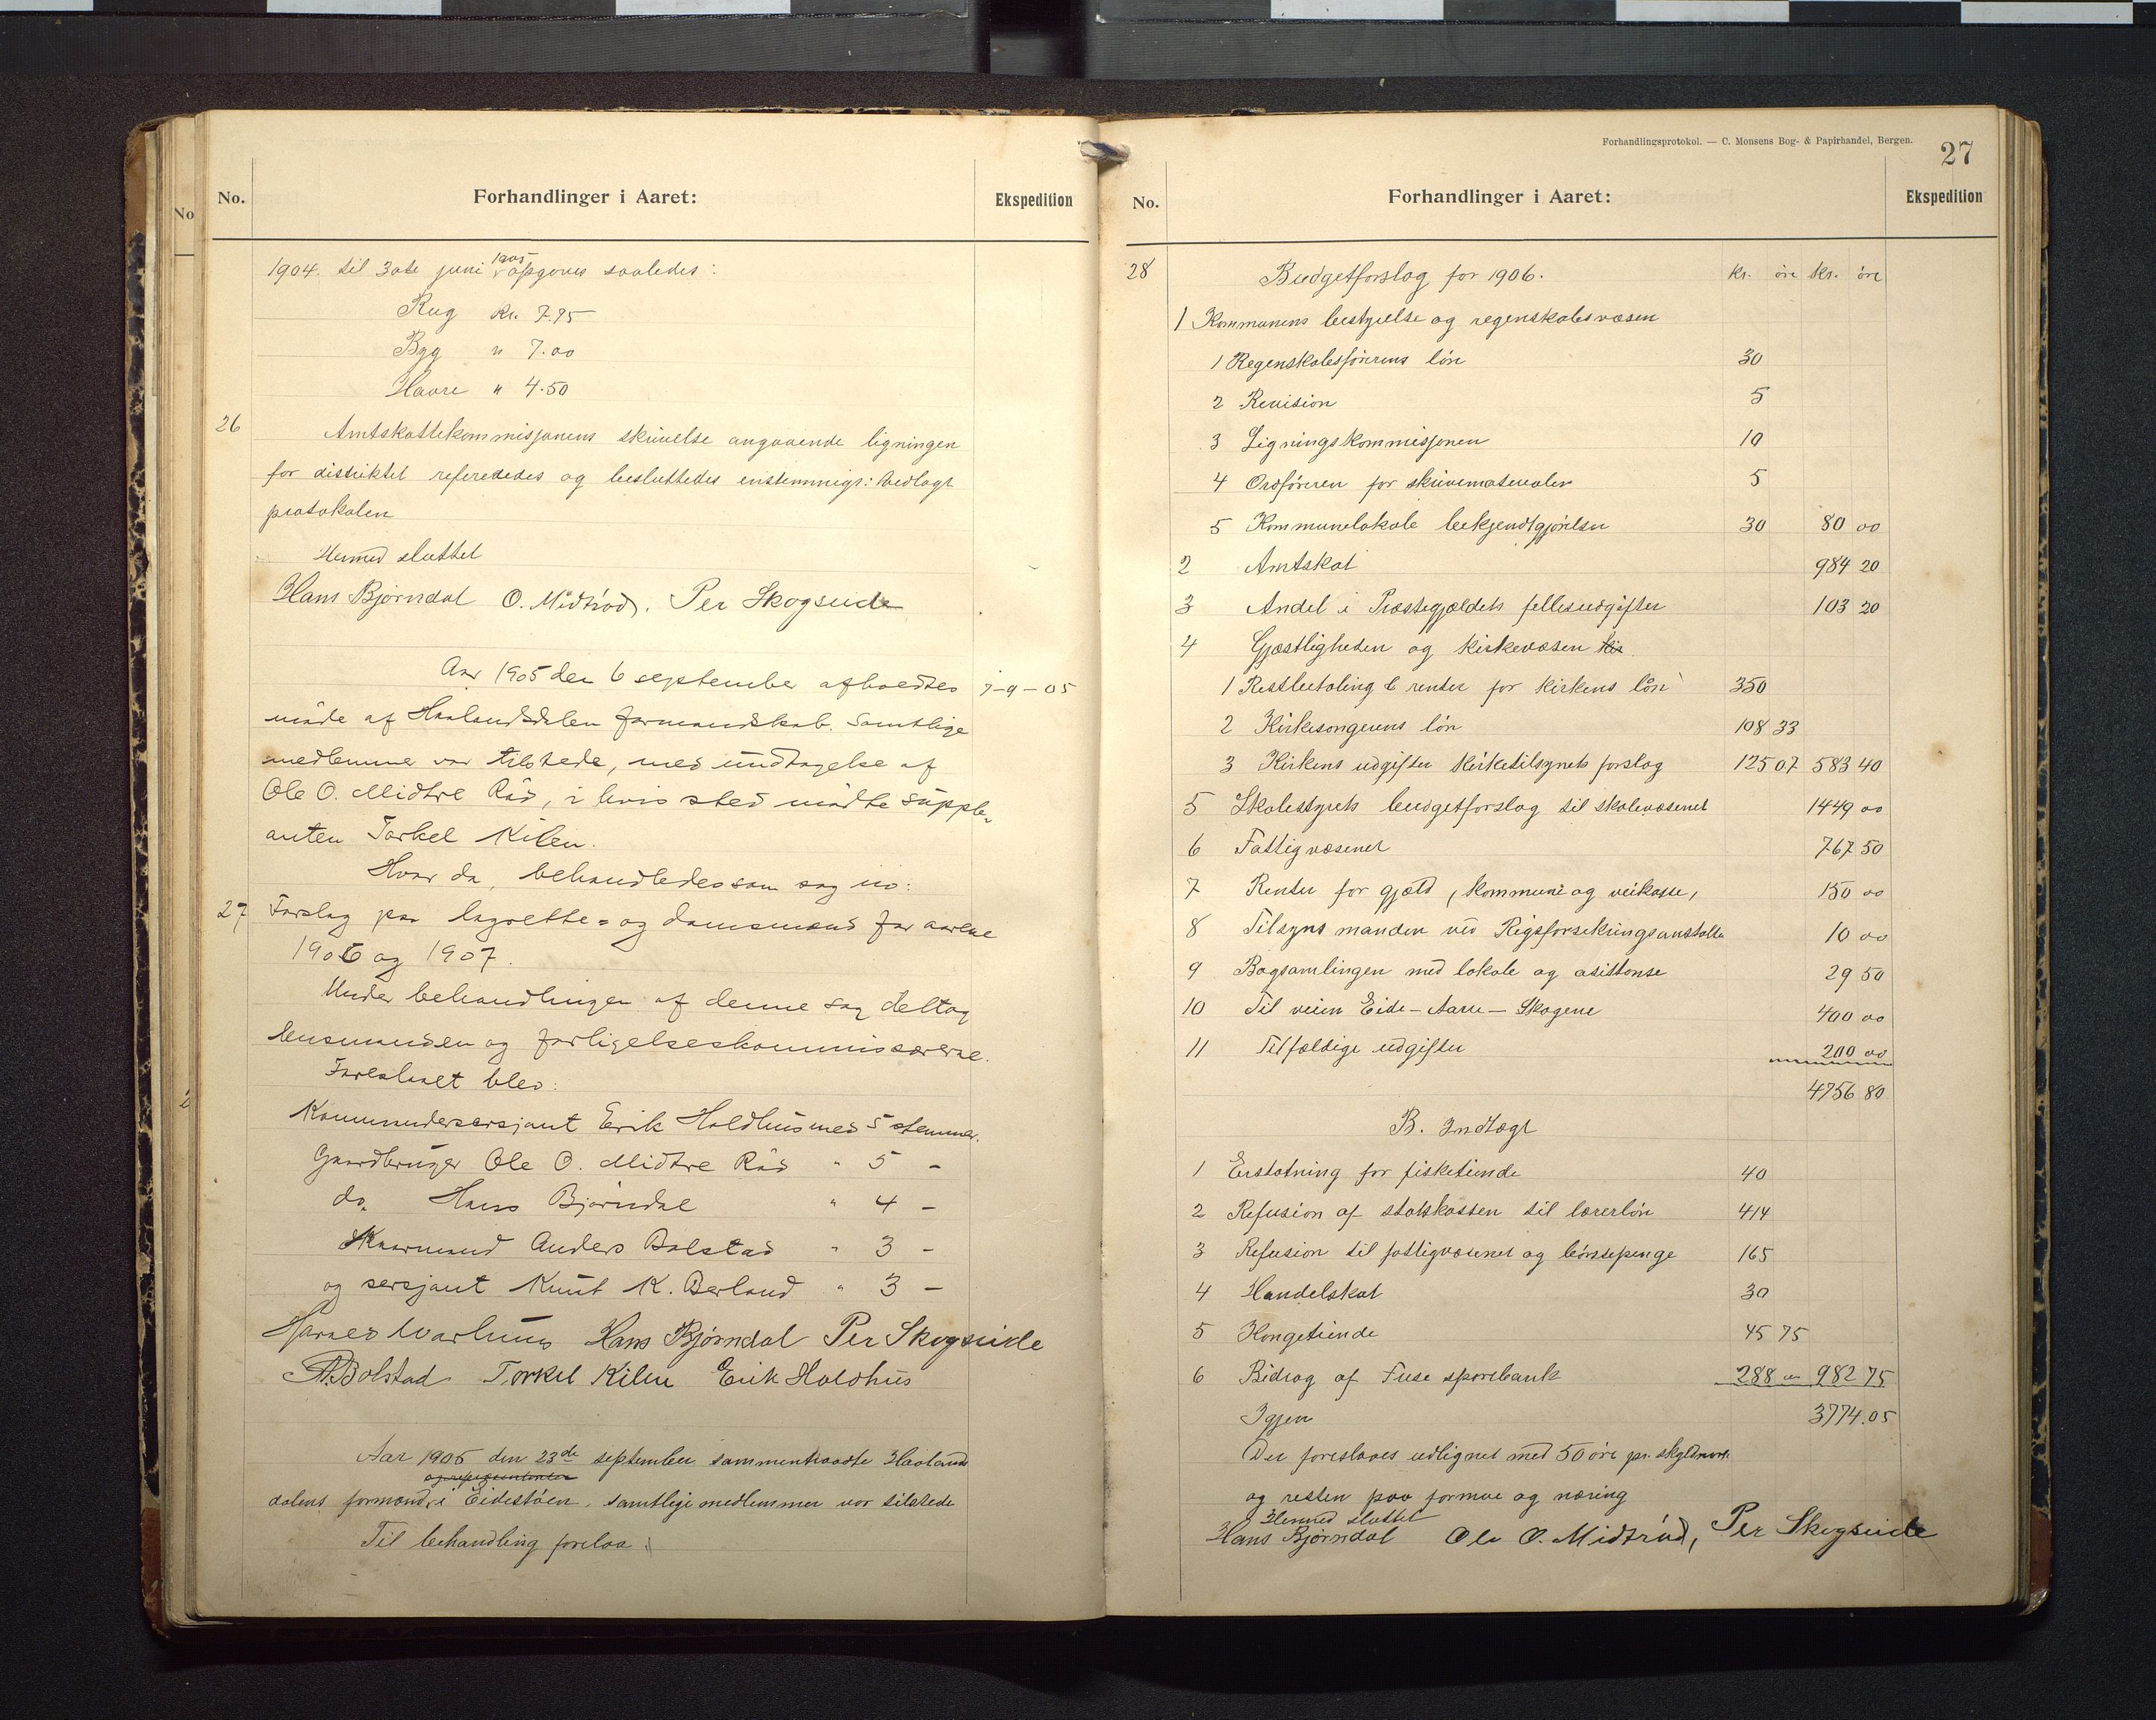 No.
Forhandlinger i Aaret:
Ekspedition
1904 til 30te juni 1905 opgoves saaledes:
Rug Kr. 7.75
Byg " 7.00
Havre " 4.50
26 Amtskattekommisjonens skrivelse angaaende ligningen
for distriktet refereredes og besluttedes enstemmigt: Vedlagt
protokolen
Hermed sluttet
Hans Bjørndal O. Midtröd. Per Skogseide
Aar 1905 den 6 september afholdtes 7-9-05
möde af Haalandsdalen formandskab. Samtlige
medlemmer var tilstede, med undtagelse af
Ole O. Midtre Röd, i hvis sted mödte supple-
anten Torkel Kilen.
Hvor da behandledes som sag no:
27 Forslag paa lagrette- og domsmænd for aarene
1906 og 1907.
Under behandlingen af denne sag deltog
lensmanden og forligelseskommissærerne.
Foreslaaet blev:
Kommandersersjant Erik Holdhus med 5 stemmer.
Gaardbruger Ole O. Midtre Röd " 5 -
do. Hans Björndal " 4 -
Anders Bolstad " 3 -
og sersjant Knut K. Berland " 3 -
Hans Bjørndal Per Skogseide
A. Bolstad Torkel Kilen Erik Holdhus
Aar 1905 den 23de september sammentraadte Haalands
og repræsentanter
dalens formænd i Eidestöen. samtlige medlemmer var tilstede
Til behandling forelaa:
Forhandlingsprotokol. — C. Monsens Bog- & Papirhandel, Bergen.
27
No.
Forhandlinger i Aaret:
Ekspedition
28 Budgetforslag for 1906. Kr. öre Kr. öre
1 Kommunens bestyrelse og regenskabsvæsen
1 Regenskabsförerens lön 30
2 Revision 5
3 Ligningskommisjonen 10
4 Ordföreren for skrivematerialer 5
5 Kommunelokale bekjendtgjörelser 30 80 00
2 Amtskat 984 20
3 Andel i Præstegjældets fellesudgifter 103 20
4 Gjæstligheden og kirkevæsen kir
1 Restbetaling & renter for kirkens lön 350
2 Kirkesongerens lön 108 33
3 Kirkens udgifter kirketilsynets forslag 125 07 583 40
5 Skolestyrets budgetforslag til skolevæsenet 1449 00
6 Fattigvæsenet 767 50
7 Renter for gjæld (kommune og veikasse, 150 00
8 Tilsynsmanden ved Rigsforsikringsanstalten 10 00
9 Bogsamlingen med lokale og asistanse 29 50
10 Til veien Eide - Aarre - Skogene 400 00
11 Tilfældige udgifter 200 00
4756 80
B. Indtægt
1 Erstatning for fisketiende 40
2 Refusion af statskassen til lærerlön 414
3 Refusion til fattigvæsenet og börsepenge 165
4 Handelskat 30
5 Kongetiende 45 75
6 Bidrag af Fuse sparebank 288 00 982 75
Igjen 3774.05
Der foreslaaes udlignet med 50 öre pr. skyldmark
og resten paa formue og næring
Hermed sluttet
Hans Bjørndal Ole O. Midtröd, Per Skogseide